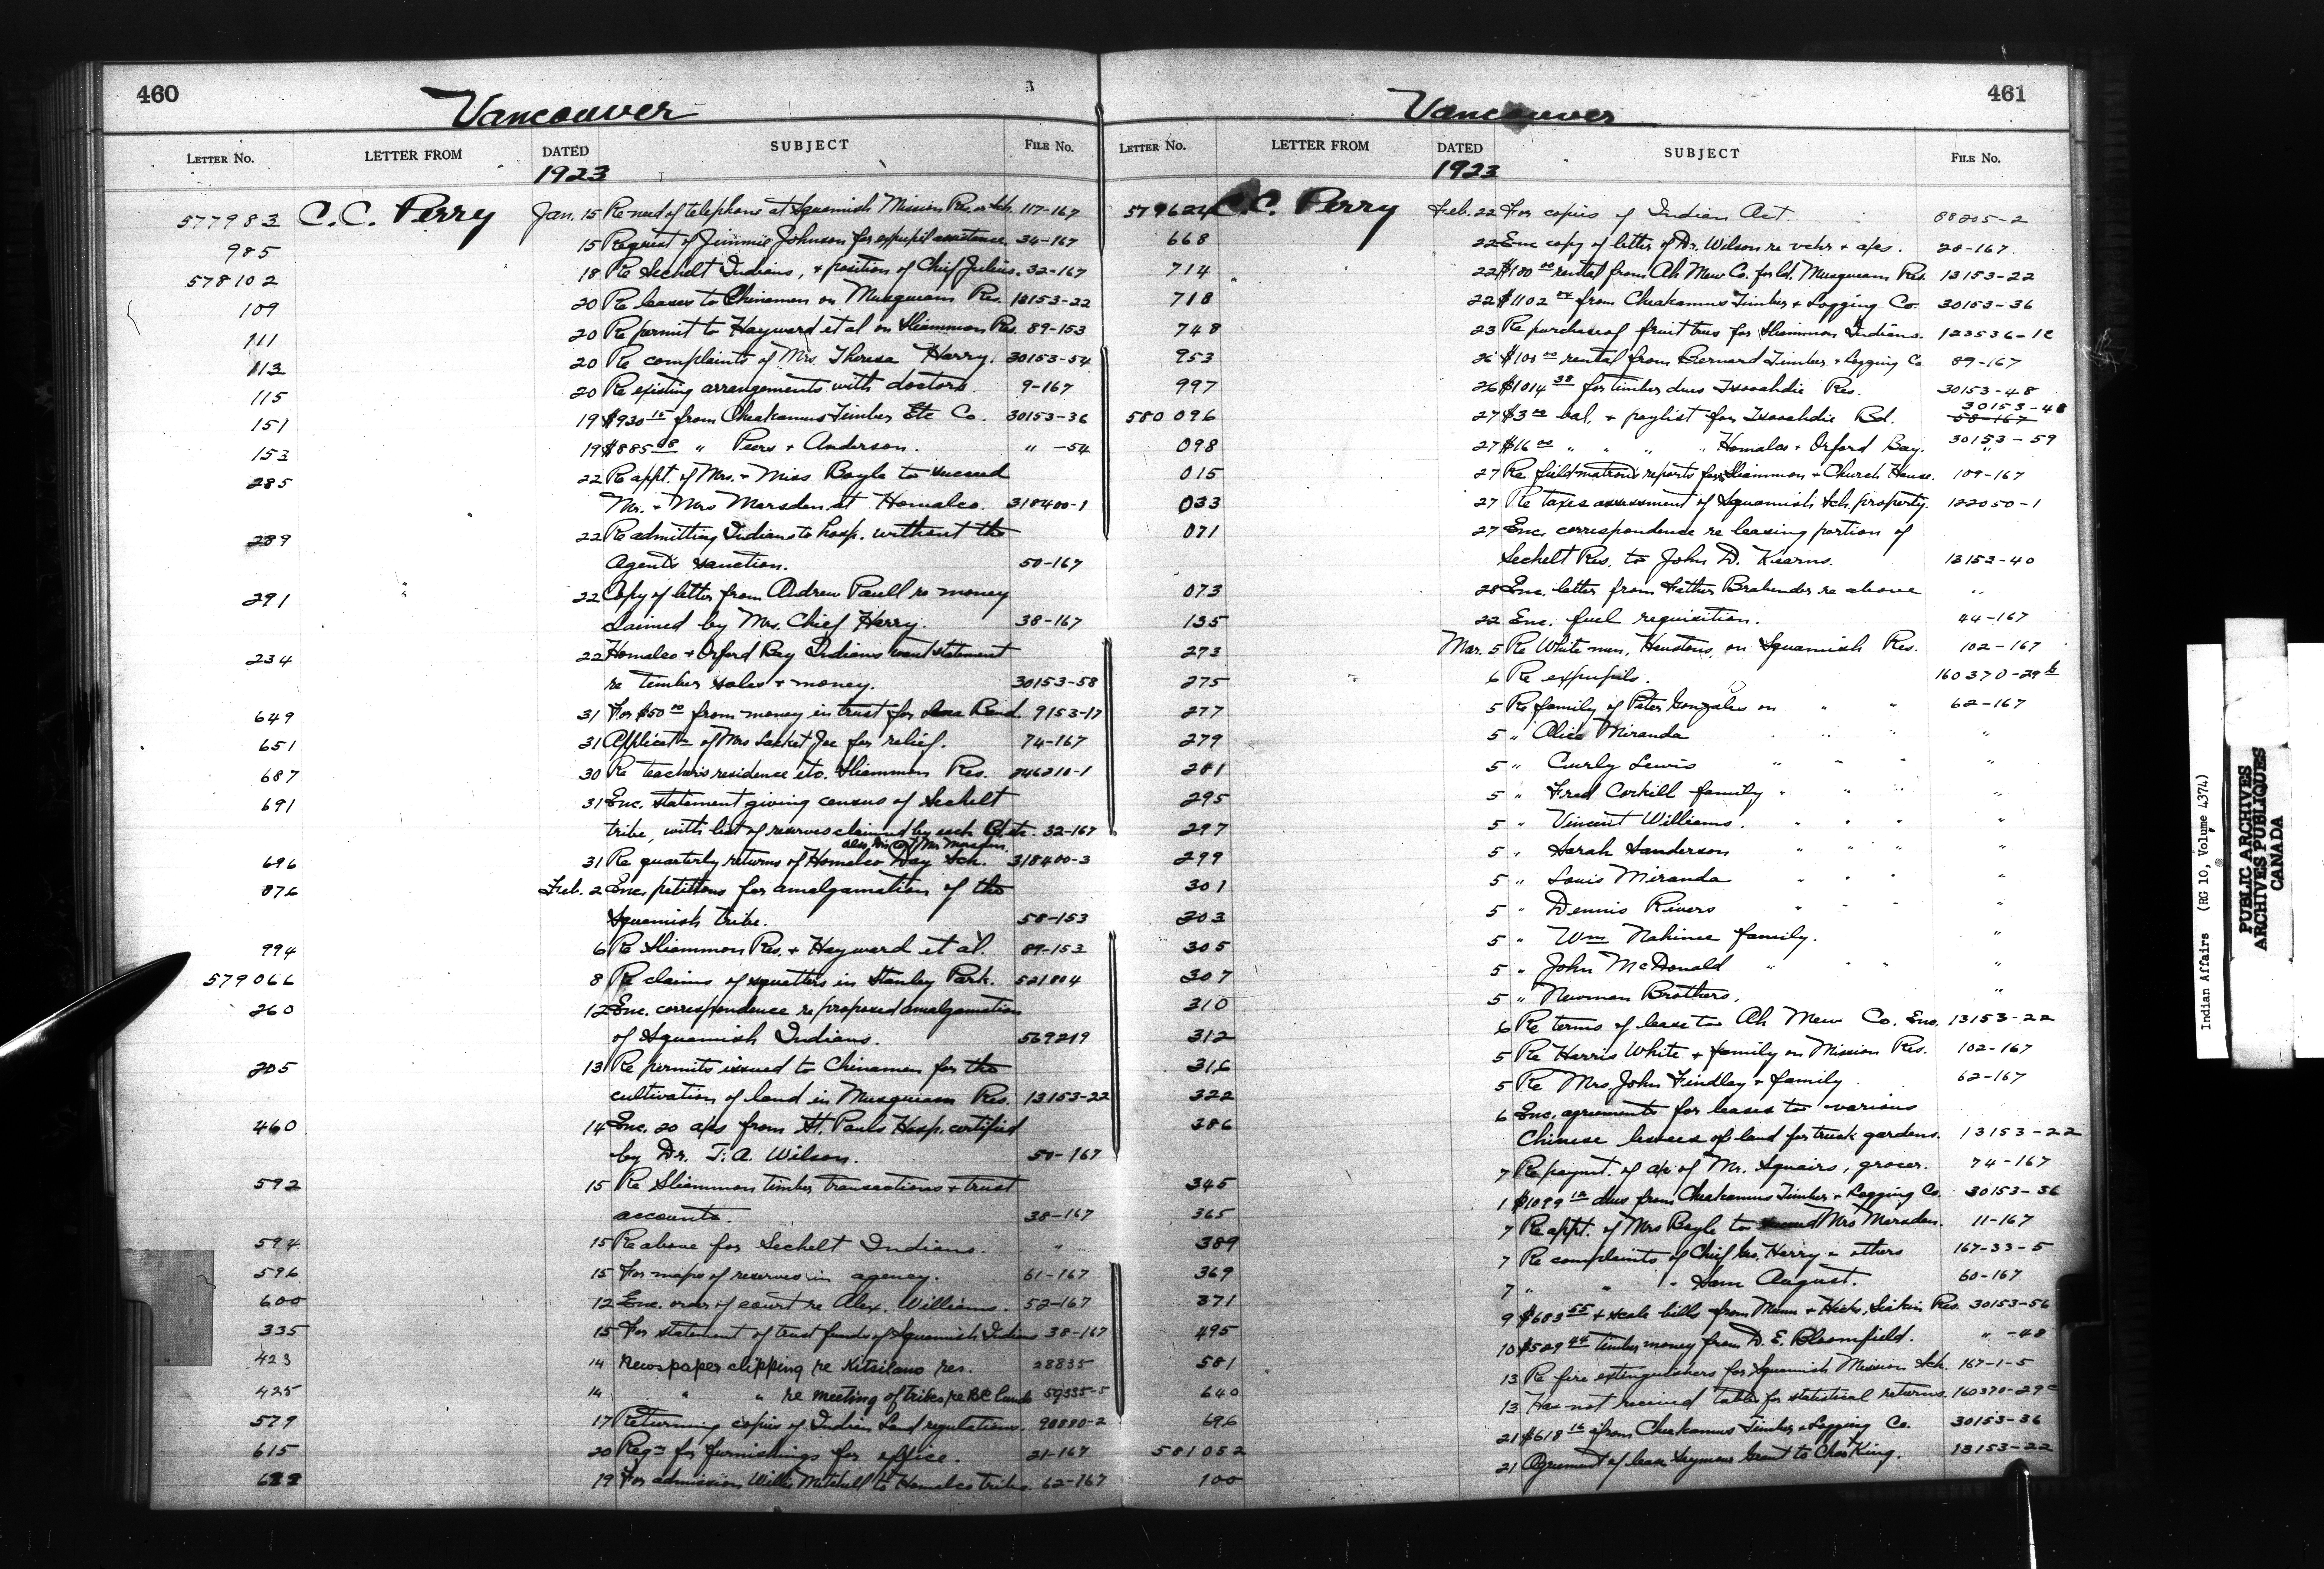 460
Vancouver
LETTER No. LETTER FROM DATED SUBJECT FILE No.
1923
577983 C.C. Perry Jan. 15 Re need of telephone at Squamish Mission Res. or Sch. 117-167
985 15 Request of Jimmie Johnson for expupil assistance 34-167
578102 18 Re Sechelt Indians, + position of Chief Julius. 32-167
109 20 Re leases to Chinamen on Musqueam Res. 13153-22
111 20 Re permit to Hayward et al on Sliammon Res. 89-153
113 20 Re complaints of Mrs Theresa Harry. 30153-54
115 20 Re existing arrangements with doctors. 9-167
151 19 $930 15 from Cheakamus Timber Etc Co. 30153-36
153 19 $885 08 " Peers + Anderson. " -54
285 22 Re appt. of Mrs. + Miss Boyle to succeed
Mr. + Mrs Marsden at Homalco. 318400-1
289 22 Re admitting Indians to hosp. without the
Agent's sanction. 50-167
291 22 Copy of letter from Andrew Paull re money
claimed by Mrs. Chief Harry. 38-167
234 22 Homalco + Orford Bay Indians want statement
re timber sales + money. 30153-58
649 31 For $50 00 from money in trust for Band. 9153-17
651 31 Applicatn of Mrs Joe for relief. 74-167
687 30 Re teacher's residence etc. Sliammon Res. 246210-1
691 31 Enc. statement giving census of Sechelt
tribe, with list of reserves claimed by each Bd. etc. 32-167
also Mr Marsden,
696 31 Re quarterly returns of Homalco Day Sch. 318400-3
876 Feb. 2 Enc. petitions for amalgamation of the
Squamish tribe. 58-153
994 6 Re Sliammon Res. + Hayward et al. 89-153
579066 8 Re claims of squatters in Stanley Park. 521804
260 12 Enc. correspondence re proposed amalgamation
of Squamish Indians. 569219
205 13 Re permits issued to Chinamen for the
cultivation of land in Musqueam Res. 13153-22
460 14 Enc. 20 a/cs from St. Pauls Hosp. certified
by Dr. T. A. Wilson. 50-167
592 15 Re Sliammon timber transactions + trust
accounts. 38-167
594 15 Re above for Sechelt Indians. "
596 15 For maps of reserves in agency. 61-167
600 12 Enc. order of court re Alex. Williams. 52-167
335 15 For statement of trust funds of Squamish Indians 38-167
423 14 Newspaper clipping re Kitsilano res. 28835
425 14 " " re meeting of tribes re B.C. Lands 59335-5
579 17 Returning copies of Indian Land regulations. 90880-2
615 20 Reqn for furnishings for office. 21-167
622 19 For admission Willie Mitchell to Homalco tribe. 62-167
461
Vancouver
LETTER No. LETTER FROM DATED SUBJECT FILE No.
1923
579624 C.C. Perry Feb. 22 For copies of Indian Act. 88205-2
668 22 Enc copy of letter of Dr. Wilson re vchr + a/cs. 28-167.
714 22 $180 00 rental from Ah Mew Co. for ld. Musqueam Res. 13153-22
718 22 $1102 from Cheakamus Timber + Logging Co. 30153-36
748 23 Re purchase of fruit trees for Sliammon Indians. 123536-12
953 26 $100 00 rental from Bernard Timber + Logging Co 89-167
997 26 $1014 38 for timber dues Tsooahdie Res. 30153-48
30153-48
580096 27 $3 00 bal. + paylist for Tsooahdie Bd. 58-167
098 27 $16 00 " " " " Homalco + Orford Bay. 30153-59
015 27 Re field matrons reports for Sliammon + Church House. 109-167
033 27 Re taxes assessment of Squamish Sch. property. 122050-1
071 27 Enc. correspondence re leasing portion of
Sechelt Res. to John D. Kearns. 13153-40
073 28 Enc. letter from Father Brabender re above "
135 22 Enc. fuel requisition. 44-167
273 Mar. 5 Re White men, Heustons, on Squamish Res. 102-167
275 6 Re expupils. 160370-29
277 5 Re family of Peter Gonzales on " " 62-167
279 5 " Alice Miranda " " "
281 5 " Curly Lewis " " " "
295 5 " Fred Corkill family " " " "
297 5 " Vincent Williams. " " " "
299 5 " Sarah Sanderson " " " "
301 5 " Louis Miranda " " " "
303 5 " Dennis Rivers " " " "
305 5 " Wm Nahinee family. "
307 5 " John McDonald " " " "
310 5 " Newman Brothers. "
312 6 Re terms of lease to Ah Mew Co. Enc. 13153-22
316 5 Re Harris White + family on Mission Res. 102-167
322 5 Re Mrs. John Findlay + family 62-167
286 6 Enc. agreements for leases to various
Chinese lessees of land for truck gardens. 13153-22
345 7 Re paymt. of a/c of Mr. Squairs, grocer. 74-167
365 1 $1099 12 dues from Cheakamus Timber + Logging Co. 30153-36
389 7 Re appt. of Mrs Boyle to succeed Mrs Marsden. 11-167
369 7 Re complaints of Chief Geo. Harry + others 167-33-5
371 7 " " " Sam August. 60-167
495 9 $683 55 + scale bills from Mann + Hicks, Res. 30153-56
581 10 $529 44 timber money from D. E. Bloomfield. " -48
640 13 Re fire extinguishers for Squamish Mission Sch. 167-1-5
696 13 Has not received tables for statistical returns. 160370-29c
581052 21 $618 16 from Cheakamus Timber + Logging Co. 30153-36
100 21 Agreement of lease Seymour Grant to Chas King. 13153-22
Indian Affairs (RG 10, Volume 4374)
PUBLIC ARCHIVES
ARCHIVES PUBLIQUES
CANADA